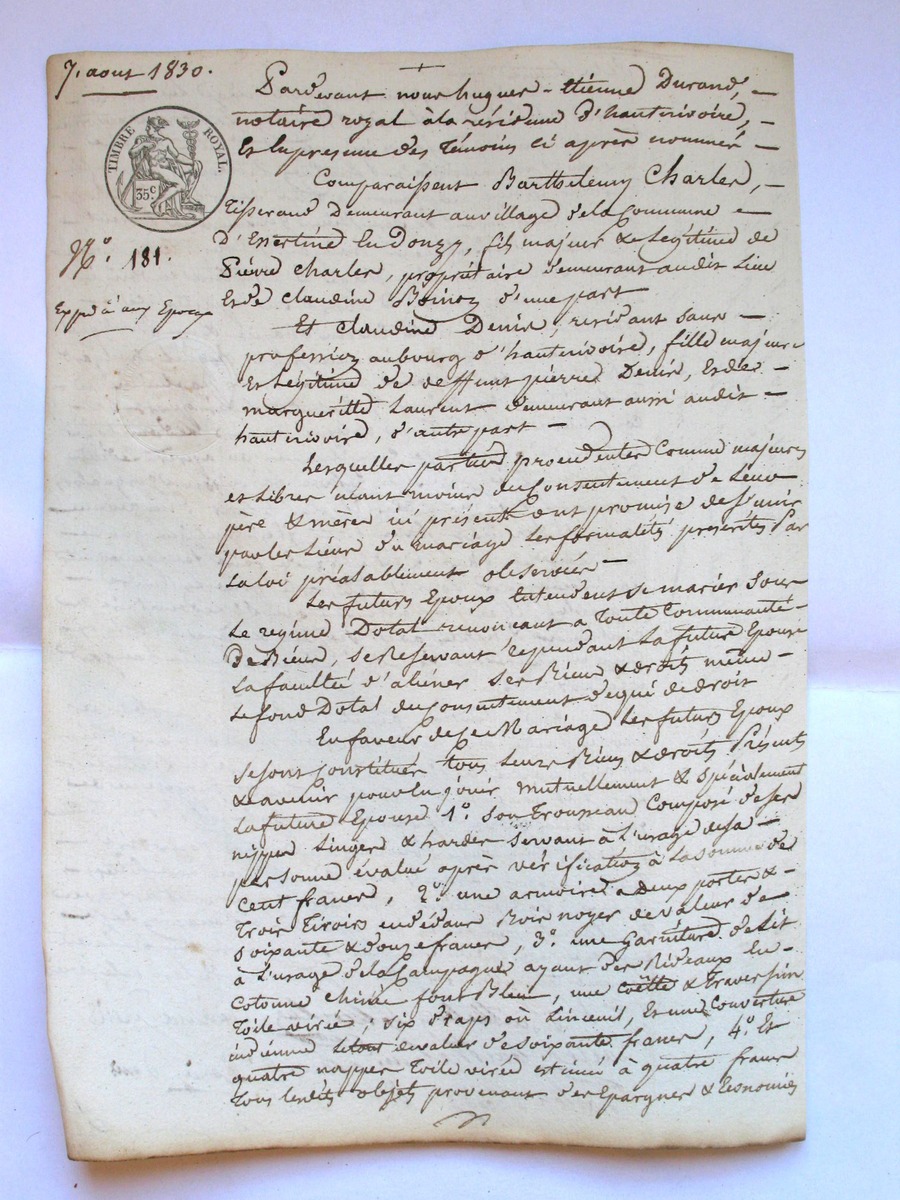 7. aout 1830.
TIMBRE ROYAL.
35c
No. 181.
Expédié aux Epoux
Pardevant nous hugues-Etienne Durand,
notaire royal à la résidence d'hauterivoire,
Et en presence des Témoins ci après nommés
Comparaissent Barthelemy Charles,
Tisserand Demeurant au village de la Commune
D'Essertine En Donzy, fils majeur & Légitime de
Pierre Charles, propriétaire demeurant audit Lieu
Et de Claudine d'une part
Et Claudine Denis, residant sans
profession au bourg d'hauterivoire, fille majeure
Et Légitime de deffunt pierre Denis, Et de
margueritte Laurent demeurant aussi audit
hauterivoire, d'autre part
Lesquelles parties procedentes Comme majeures
et Libres néantmoins du Consentement de Leurs
père & mères ici présents ont promis de s'unir
par les Liens du mariage Les formalités prescrites Par
La Loi préalablement observées
Les futurs Epoux Entendent se marier Sous
Le regime Dotal renoncant à Toute Communauté
De Biens, se Reservant Cependant La future Epouse
La faculté d'aliéner ses Biens & droits même
Le fond Dotal du Consentement de qui de droit
En faveur de Ce Mariage Les futurs Epoux
se sont Constitués Tous Leurs Biens & droits Présents
& avenir pour en jouir mutuellement & spécialement
La future Epouse 1o. son Trousseau Composé de ses
nippes Linges & hardes servant à L'usage de sa
personne évalué après vérification à La somme de
Cent francs, 2o. une armoire a deux portes &
Trois Tiroirs Bois noyer de valeur de
soixante & douze francs, 3o. une Garniture de Lit
à L'usage de la Campagne ayant des Rideaux En
Cotonne Chinée fond Bleu, une Coëtte & Traversin
Toile virée, six draps où Linceuil, Et une Couverture
indienne Le tout de valeur de soixante francs, 4o. Et
quatre nappes Toile virée estimé à quatre francs
Tous Lesdits objets provenant des Epargnes & Economies